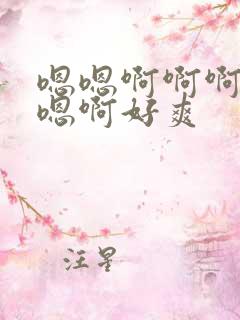 嗯嗯啊啊啊
嗯啊好爽
汪星